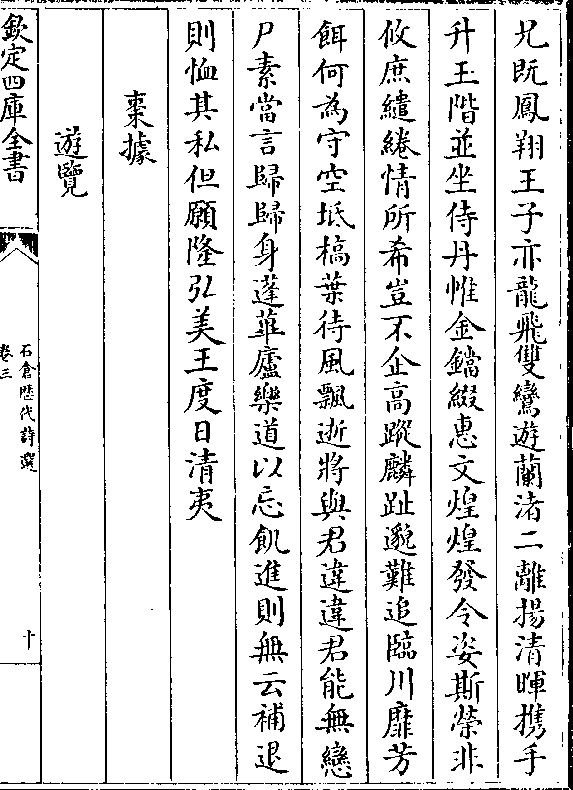 兄既鳳翔王子亦龍飛雙鸞遊蘭渚二離揚清暉携手
升玉階並坐侍丹帷金鐺綴惠文煌煌發令姿斯榮非
攸庶繾綣情所希豈不企高蹤麟趾邈難追臨川靡芳
餌何為守空坻槁葉待風飄逝將與君違違君能無戀
尸素當言歸歸身蓬蓽廬樂道以忘飢進則無云補退
則恤其私但願隆弘美王度日清夷
棗據
遊覽
欽定四庫全書
石倉歷代詩選
卷三
十